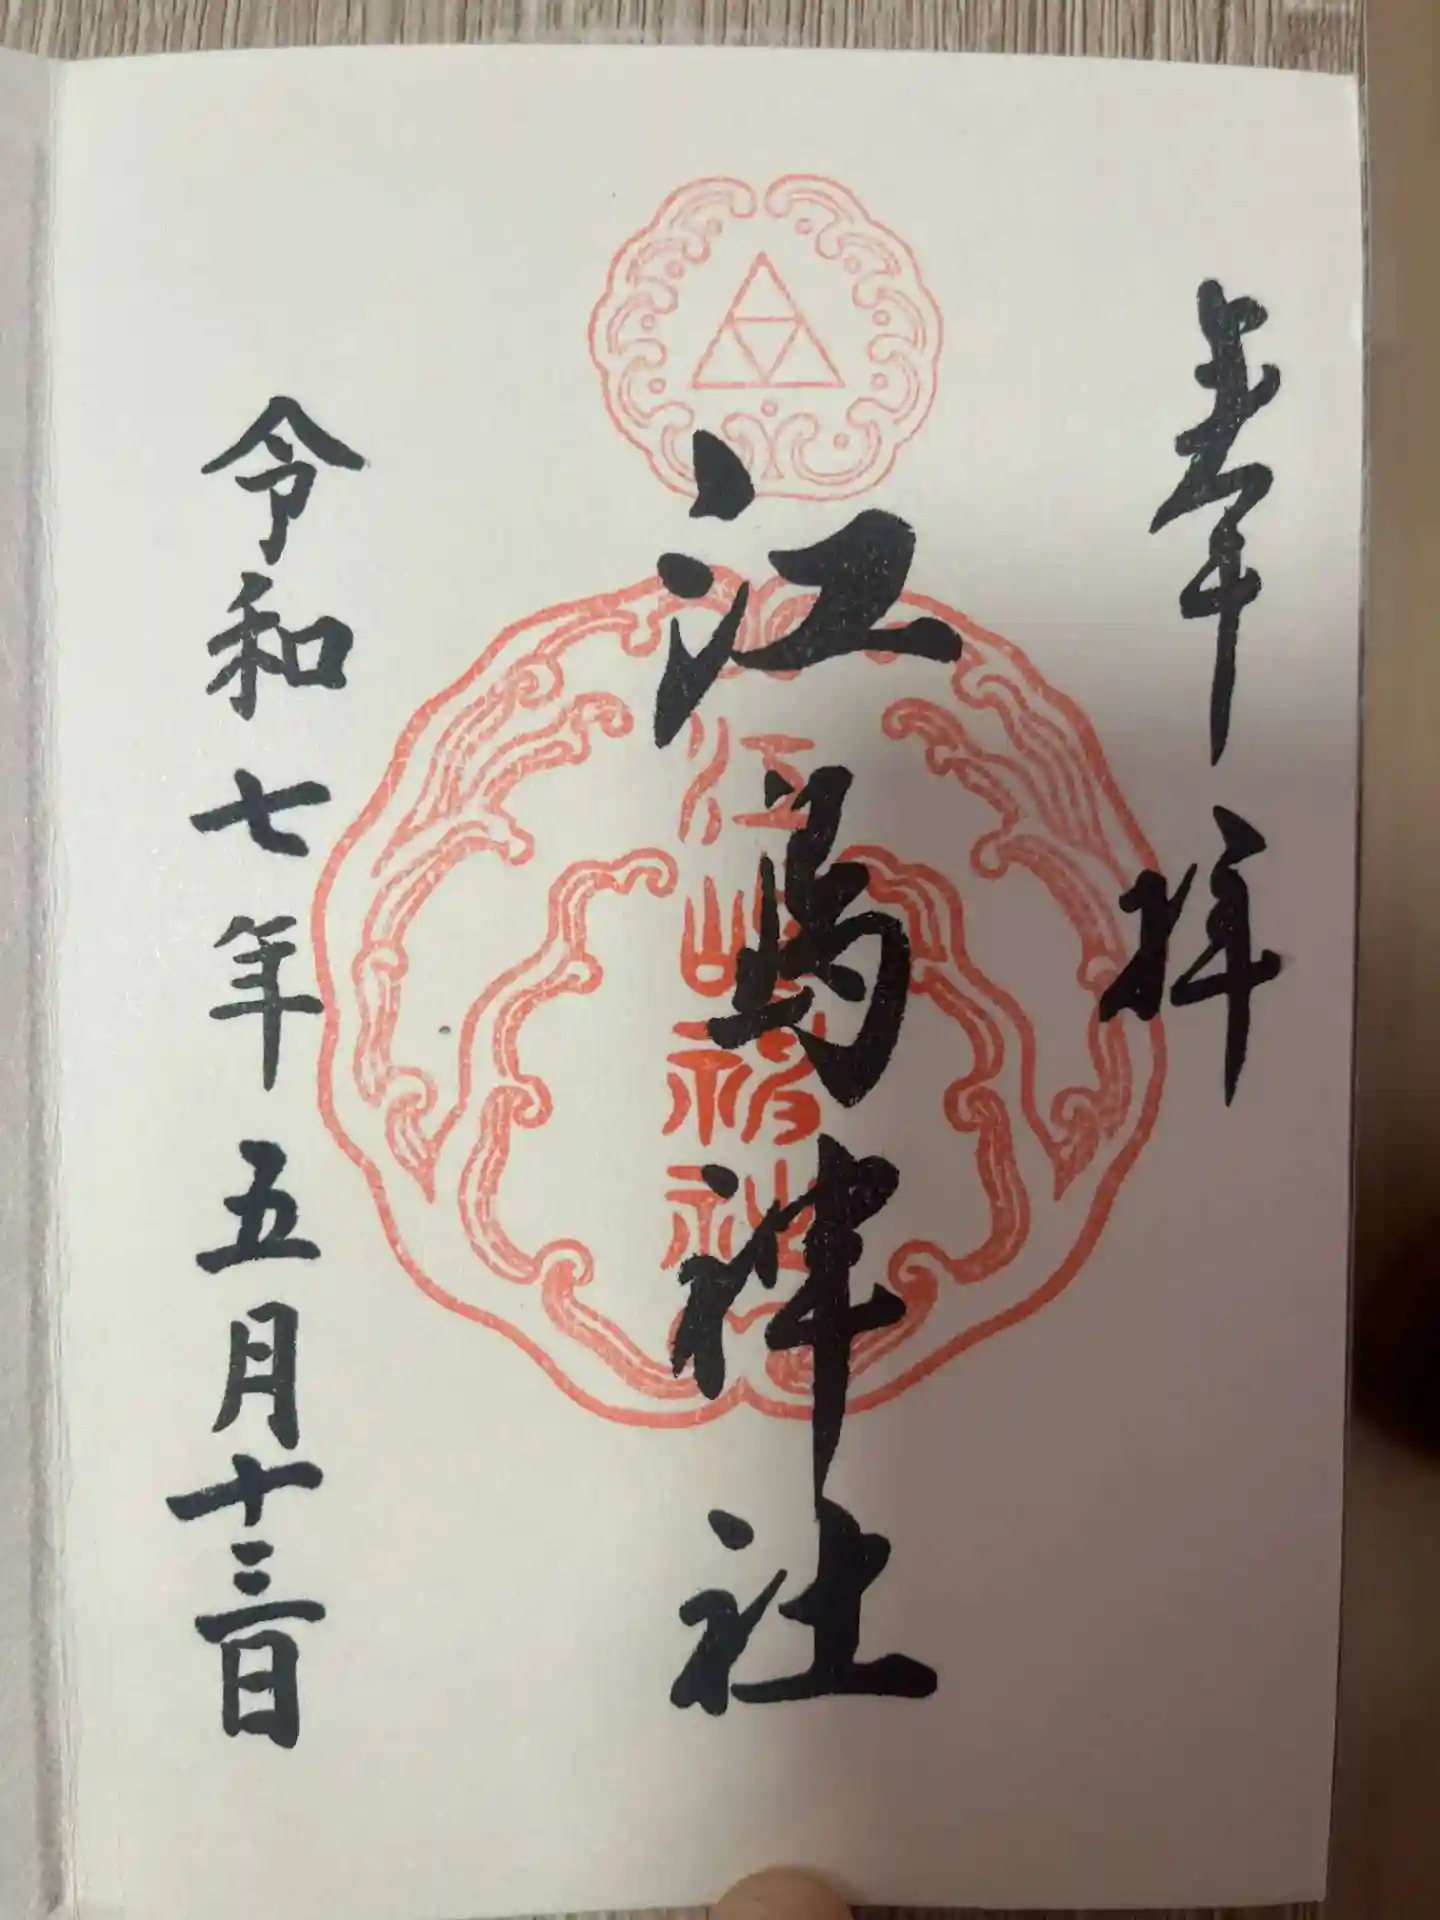 奉拝
江島神社
江島神社
令和七年五月十三日